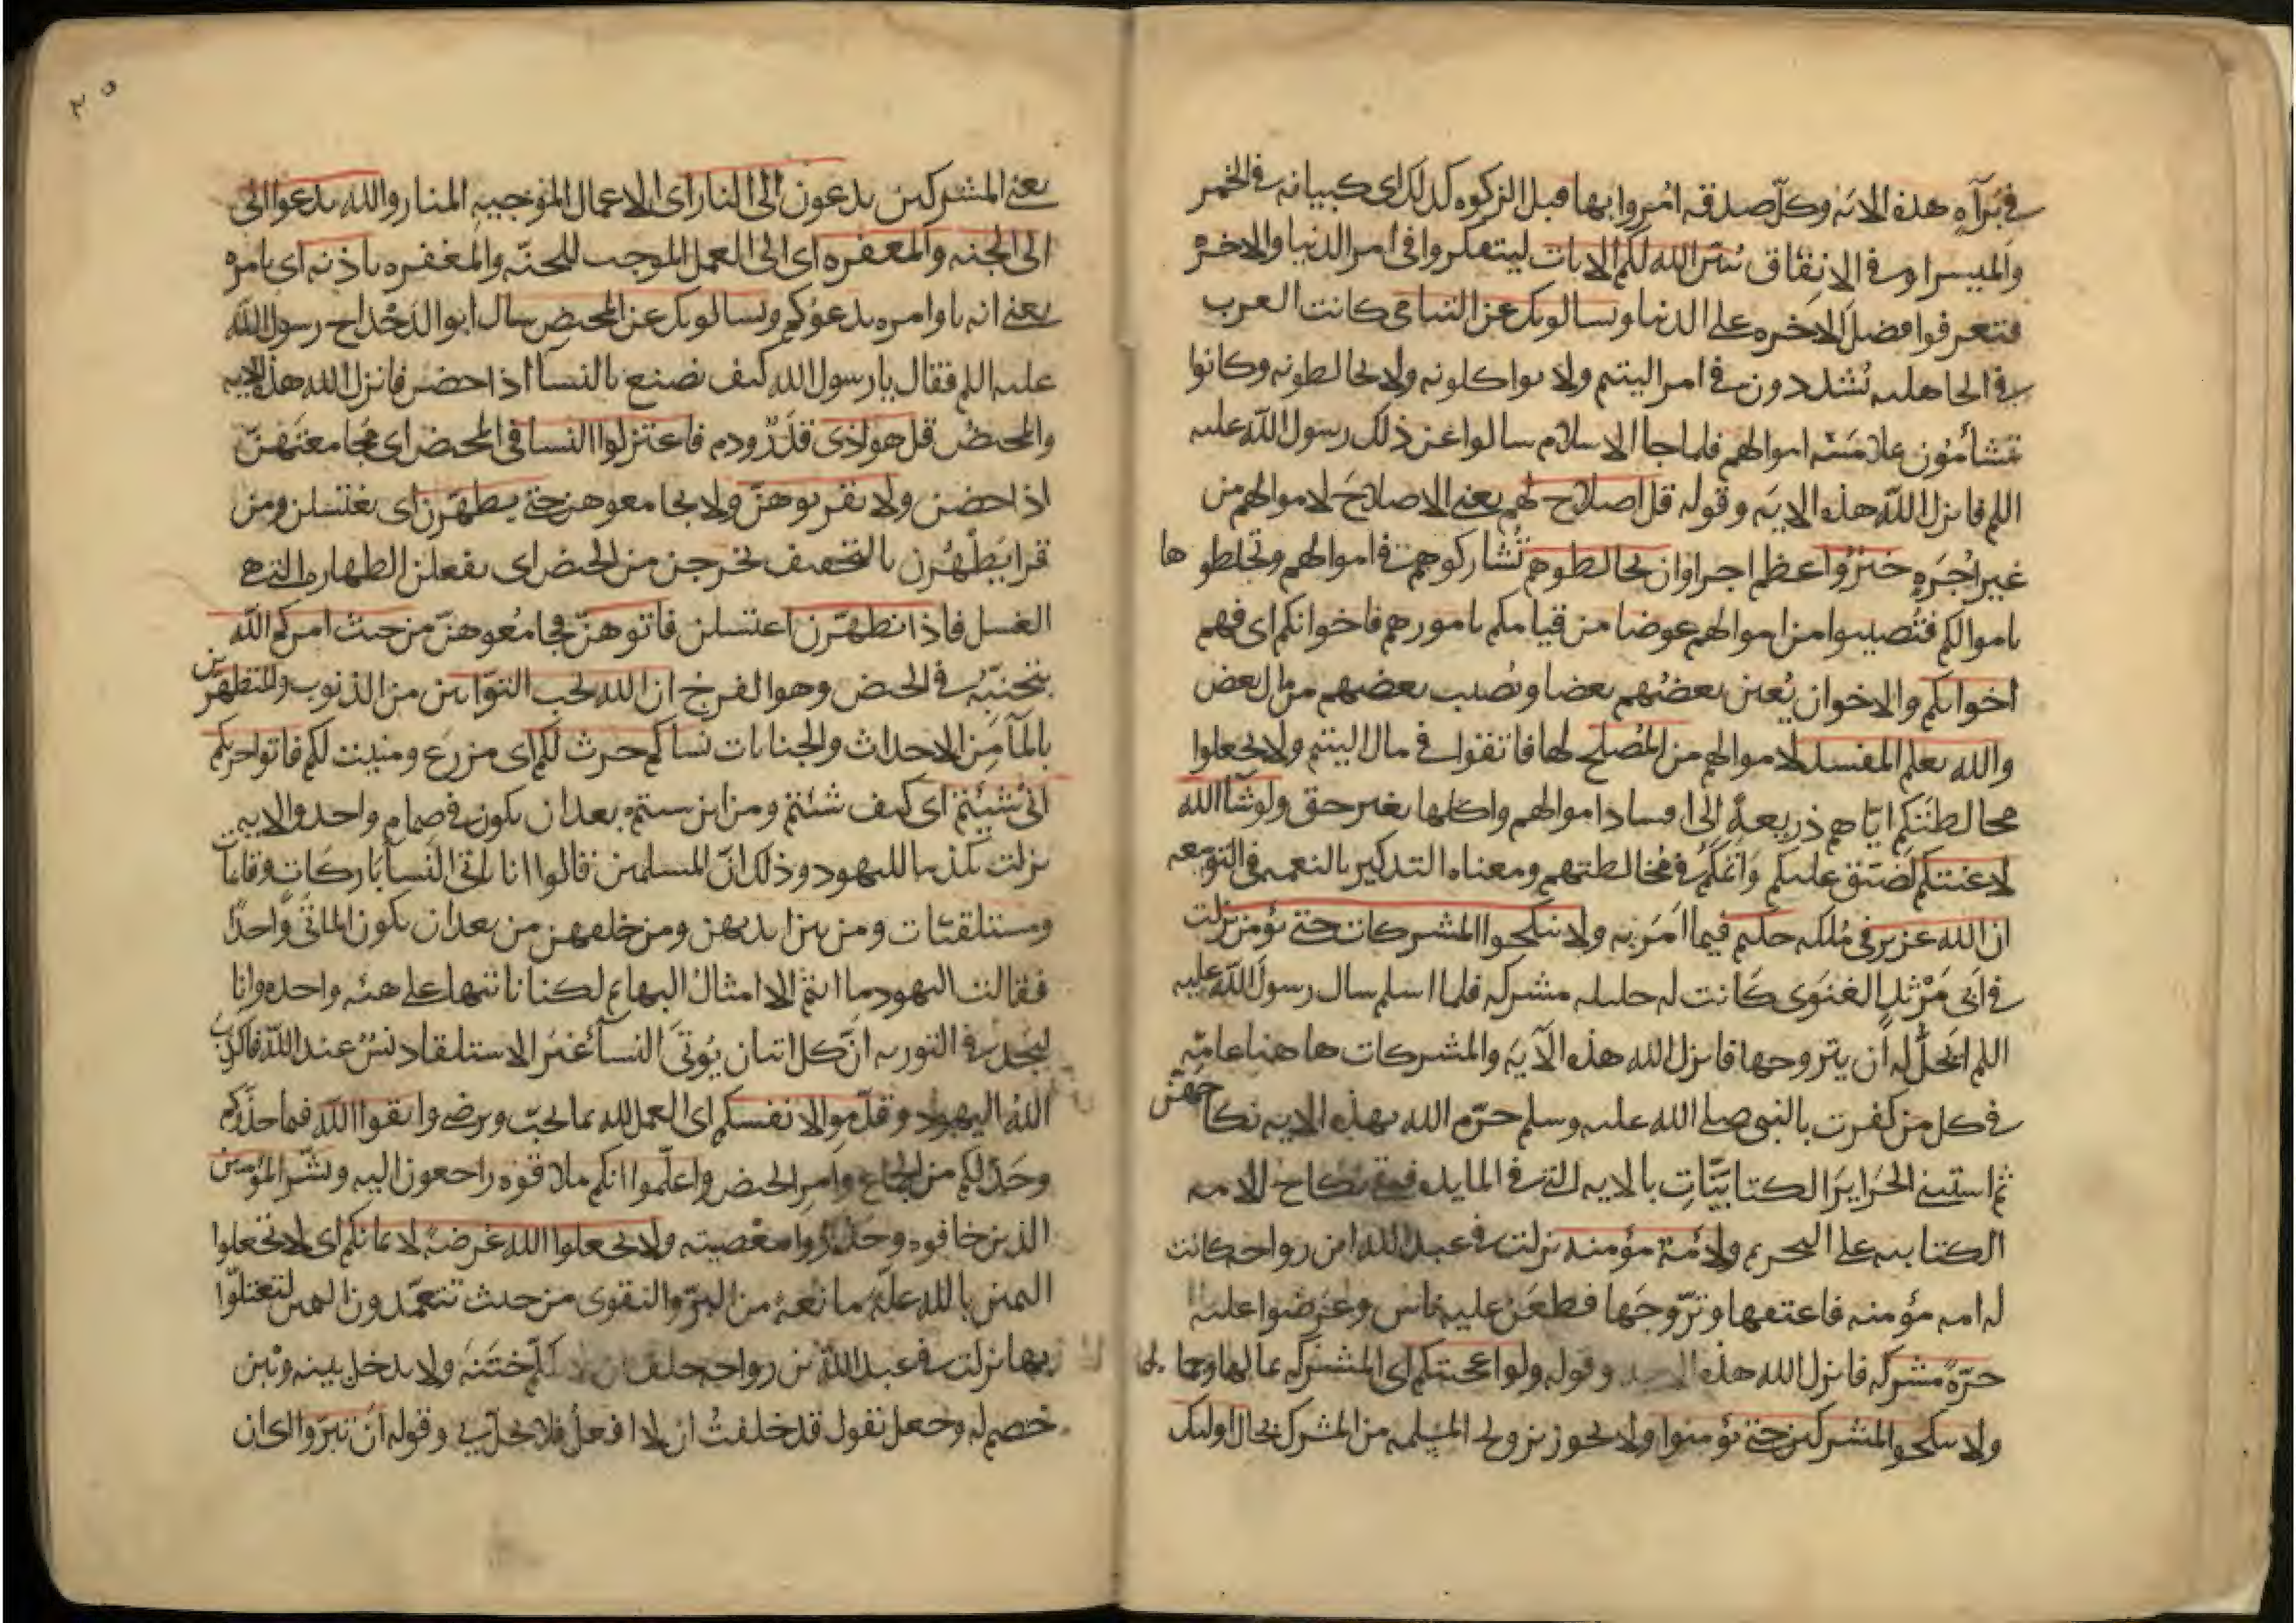 في برآه هذه الايه وكلّ صدقه اُمِروا بها قبل الزكوه كذلك اى كبيانه في الخمر
والميسر او في الانفاق يبيّن الله لكم الايات ليتفكروا في امر الدنيا والاخره
فتعرفوا فضل الاخره على الدنيا ويسالونك عن اليتامى كانت العرب
في الجاهليه يُشددون في امر اليتيم ولا يواكلونه ولا يخالطونه وكانوا
يتشأمُون بملامَسَه اموالهم فلما جا الاسلام سالوا عن ذلك رسول الله عليه
اللم فانزل الله هذه الايه وقوله قل اصلاح لهم يعنى الاصلاحَ لاموالهم من
غير اُجرَهٍ خيرٌ واعظم اجرا وان تخالطوهم تُشاركوهم في اموالهم وتخلطوها
باموالكم فتُصيبوا من اموالهم عوضا من قيامكم بامورهم فاخوانكم اى فهم
اخوانكم والاخوان يُعين بعضُهم بعضا ويُصيب بعضهم من مال بعض
والله يعلم المفسد لاموالهم من المُصلح لها فاتقوا في مال اليتيم ولا تجعلوا
مخالطتكم ايّاهم ذريعهً الى افساد اموالهم واكلها بغير حق ولو شآ الله
لاعنتكم لضَيّق عليكم وآثمكم في مُخالطتهم ومعناه التذكير بالنعمه في التوسعه
ان الله عزيز في مُلكه حكيم فيما اَمَر به ولا تنكحوا المشركات حتى يؤمن نزلت
في اَبي مَرْثدٍ الغنَوى كانت له خليله مشركه فلما اسلم سال رسولَ الله عليه
اللم اَتحلُّ له اَن يتزوجها فانزل الله هذه الآيه والمشركات ها هنا عامّه
في كل من كفرت بالنبي صلى الله عليه وسلم حرّم الله بهذه الايه نكاحهنّ
ثم استثنى الحَرايرَ الكتابيّاتِ بالايه التى في المايده فبقى نكاح الامه
الكتابيه على التحريم ولاَمَة مؤمنه نزلت في عبد الله ابن رواحه كانت
له امه مؤمنه فاعتقها وتزّوجَها فطعَن عليه ناس وعَرَضوا عليه
حرّهً مشركه فانزل الله هذه وقوله ولو اعجبتكم اى المشركه بمالها وجمالها
ولا تنكحوا المشركين حتى يؤمنوا ولا يجوز تزويج المسلمه من المشرك بحال اوليك
٢٥
يعنى المشركين يدعون الى النار اى الاعمال الموجبه للنار والله يدعوا الى
الى الجنه والمغفره اى الى العمل الموجب للجنّه والمغفره باذنه اى بامره
يعنى انه باوامره يدعوُكم ويسالونك عن المحيض سال ابو الدَحْداح رسول الله
عليه اللم فقال يا رسول الله كيف نصنع بالنسآ اذا حضن فانزل الله هذه الايه
والمحيضُ قل هو اذى قذَرٌ ودم فاعتزلوا النسا في المحيض اى مجامعتَهنّ
اذا حضن ولا تقربوهنّ ولا تجامعوهن حتى يطّهّرن اى يغتسلن ومن
قرا يَطْهُرن بالتخفيف يخرجن من الحيض اى يفعلن الطهاره التى هى
الغسل فاذا تطهّرن اغتسلن فاتوهنّ مجامعُوهنّ من حيث امركم الله
بتجنبّه في الحيض وهو الفرج ان الله يحب التوّابين من الذنوب والمتطهّرين
بالمآ مِن الاحداث والجنابات نساكم حرث لكم اى مزرَع ومنبِت لكم فاتوا حرثكم
انى شيئتم اى كيف شئتم ومن اين شيتم بعد ان يكون في صِمام واحد والايه
نزلت تكذيبا لليهود وذلك انّ المسلمين قالوا انا ناتي النسآ بَاركاتٍ وقايمات
ومستلقيات ومن بين ايديهن ومن خلفهن من بعد ان يكون الماتَى واحدًا
فقالت اليهود ما انتم الا امثالُ البهايم لكنا ناتيها على هيئه واحده وانا
لنجد في التوريه انّ كل اتيان يُوتَى النسآ غيَر الاستلقا دنَسٌ عند الله فاكذب
اللهُ اليهود وقدّموا لانفسكم اى العمل لله بما يُحبّ ويرضى واتقوا الله فيما حذّركم
وحَدّ لكم من الجماع وامرِ الحيض واعلموا انكم ملاقوه راجعون اليه وبشّر المؤمنين
الذين خافوه وحَذروا معصيته ولا تجعلوا الله عُرضهً لايمانكم اى لا تجعلوا
اليمين بالله علّهً مانعهً من البرّ والتقوى من حيث تتعمّدون اليمين لتعتلّوا
بها نزلت في عبد الله بن رواحه حلف ان لا يكلّم ختَنهَ ولا يدخل بينه وبين
خصم له وجعل يقول قد حلفتُ ان لا افعلَ فلا يحلّ لي وقوله اَن تبرّوا اى ان